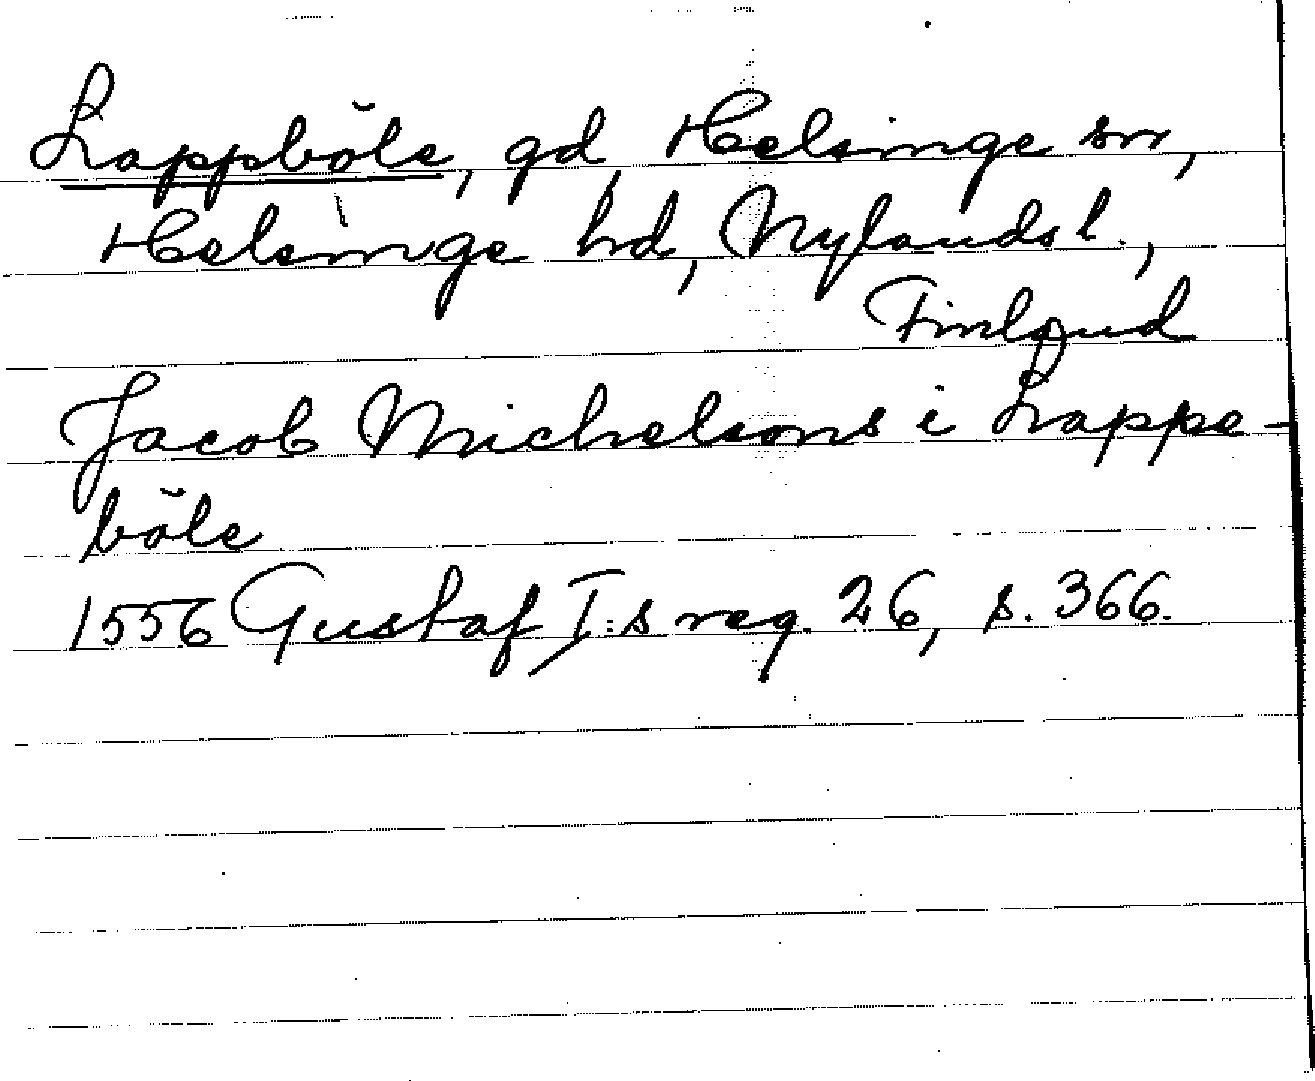 Lappböle, gd, Helsinge sn,
Helsinge hd, Nylands l.,
Finland
Jacob Michelsons i Lappe-
böle
1556 Gustaf I:s reg. 26, s. 366.